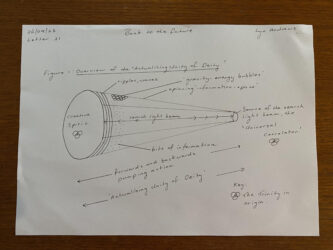 Letter 21
Back to the Future
Figure: Overview of the 'Actualising Unity of Deity'
ripples, waves
'gravity-energy bubbles'
spinning information-space
Creative
Spirit
search light beam
Source of the search
light beam, the
'universal
correlator'
bits of information
forwards and backwards
pumping action
'Actualising Unity of Deity'
Key:
the trinity in
origin